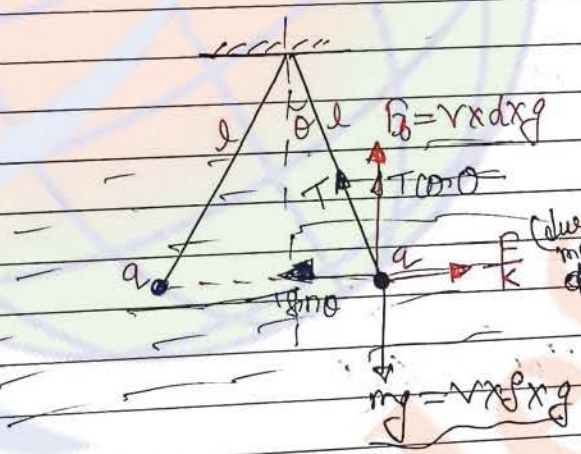 l θ l
F_b = V×d×g
T T cos θ
q q F/K
T sin θ
mg = V×ρ×g